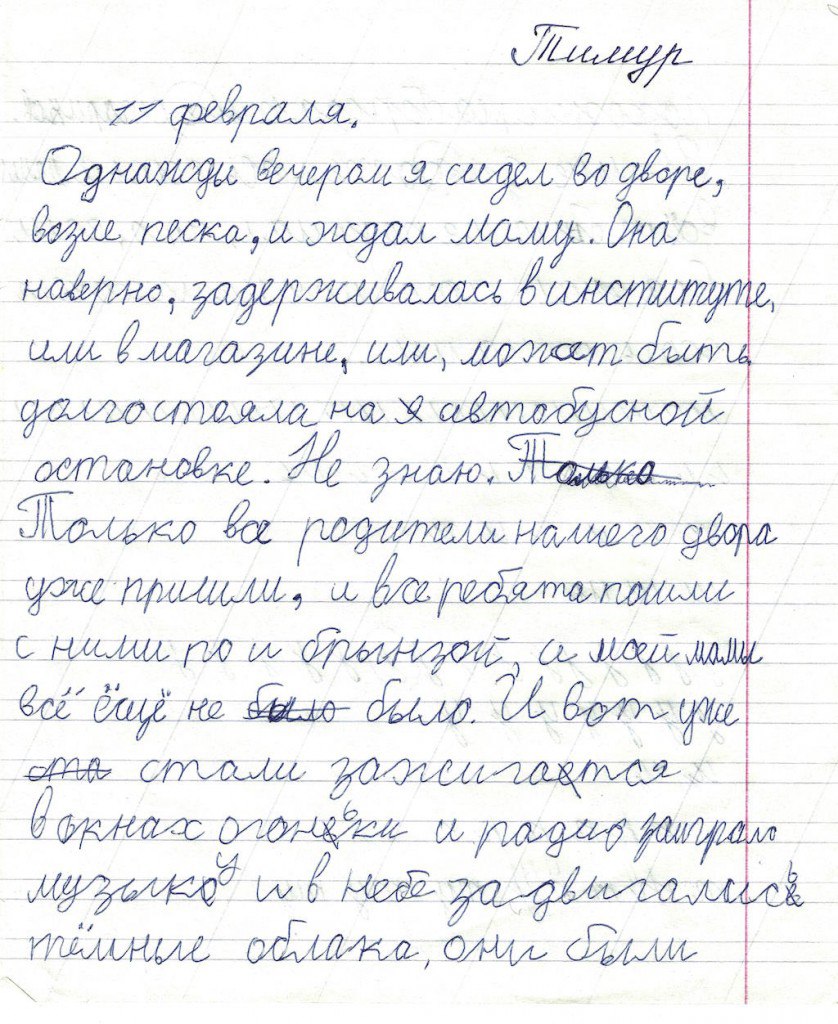 Тимур
11 февраля.
Однажды вечером я сидел во дворе,
возле песка, и ждал маму. Она
наверно, задерживалась в институте,
или в магазине, или, может быть
долго стояла на автобусной
остановке. Не знаю. Только
Только все родители нашего двора
уже пришли, и все ребята пошли
с ними по и брынзой, а моей мамы
всё ёщё не было было. И вот уже
ота стали зажигатся
в окнах огоньки и радио заиграло
музыку и в небе задвигались
тёмные облака, они были